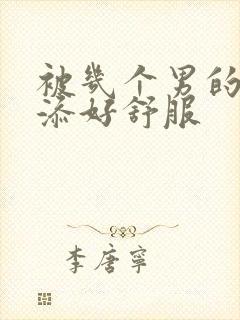 被幾个男的
添好舒服
李唐寧